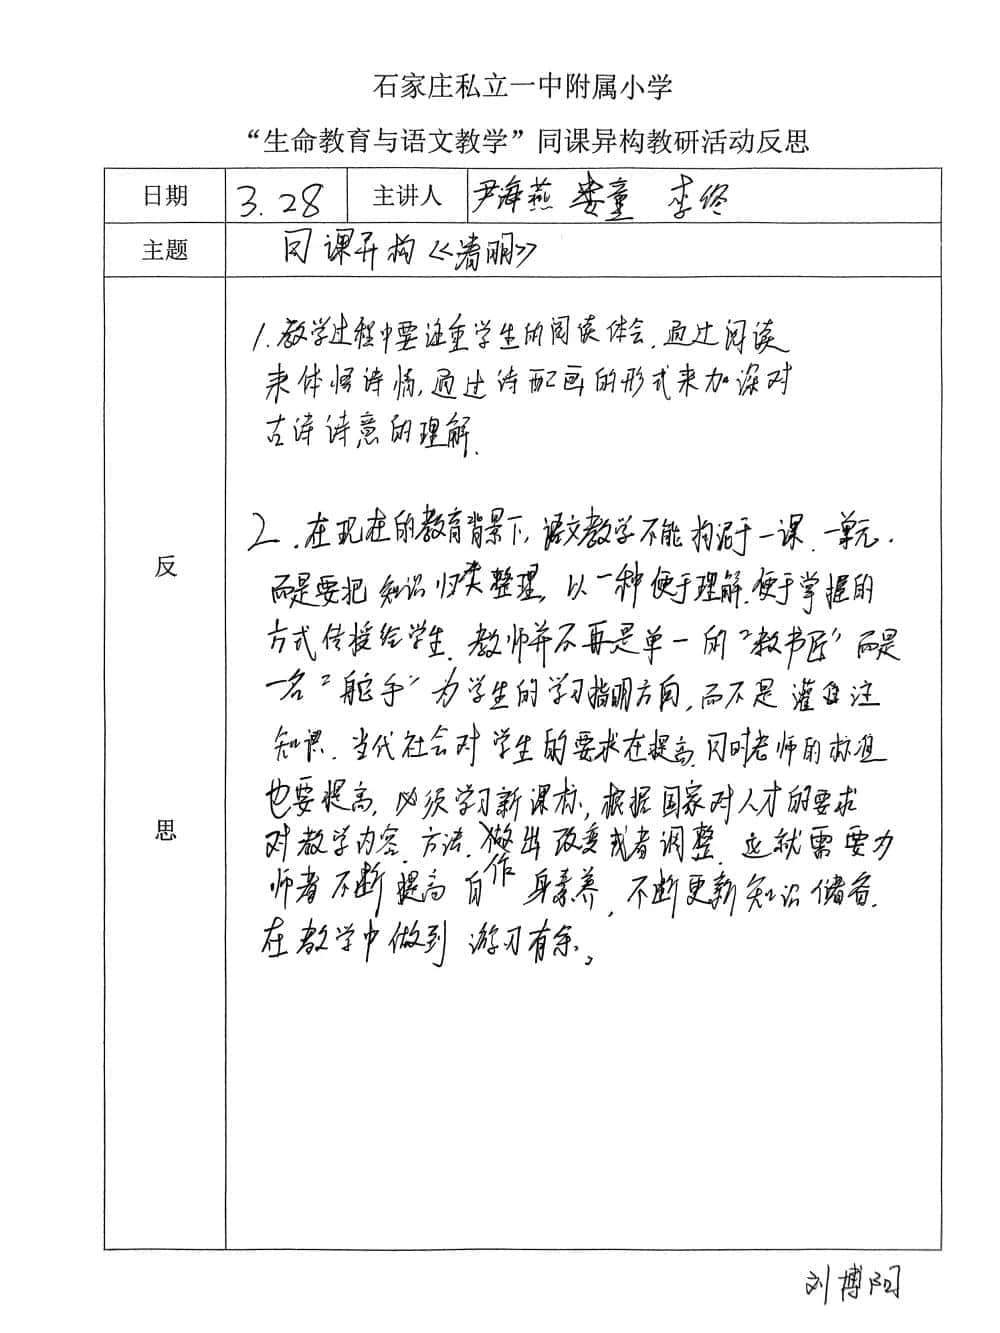 石家庄私立一中附属小学
“生命教育与语文教学”同课异构教研活动反思
日期 3.28 主讲人 尹海燕 娄童 李佟
主题 同课异构《清明》
反思
1.教学过程中要注重学生的阅读体会,通过阅读
来体悟诗情,通过诗配画的形式来加深对
古诗诗意的理解.
2.在现在的教育背景下,语文教学不能拘泥于一课.一单元.
而是要把知识归类整理,以一种便于理解.便于掌握的
方式传授给学生.教师并不再是单一的“教书匠”而是
一名“舵手”为学生的学习指明方向,而不是灌注
知识.当代社会对学生的要求在提高,同时老师的标准
也要提高,必须学习新课标,根据国家对人才的要求
对教学内容.方法.做出改变或者调整.这就需要
师者不断提高自身素养,不断更新知识储备.
在教学中做到游刃有余。
刘博阳